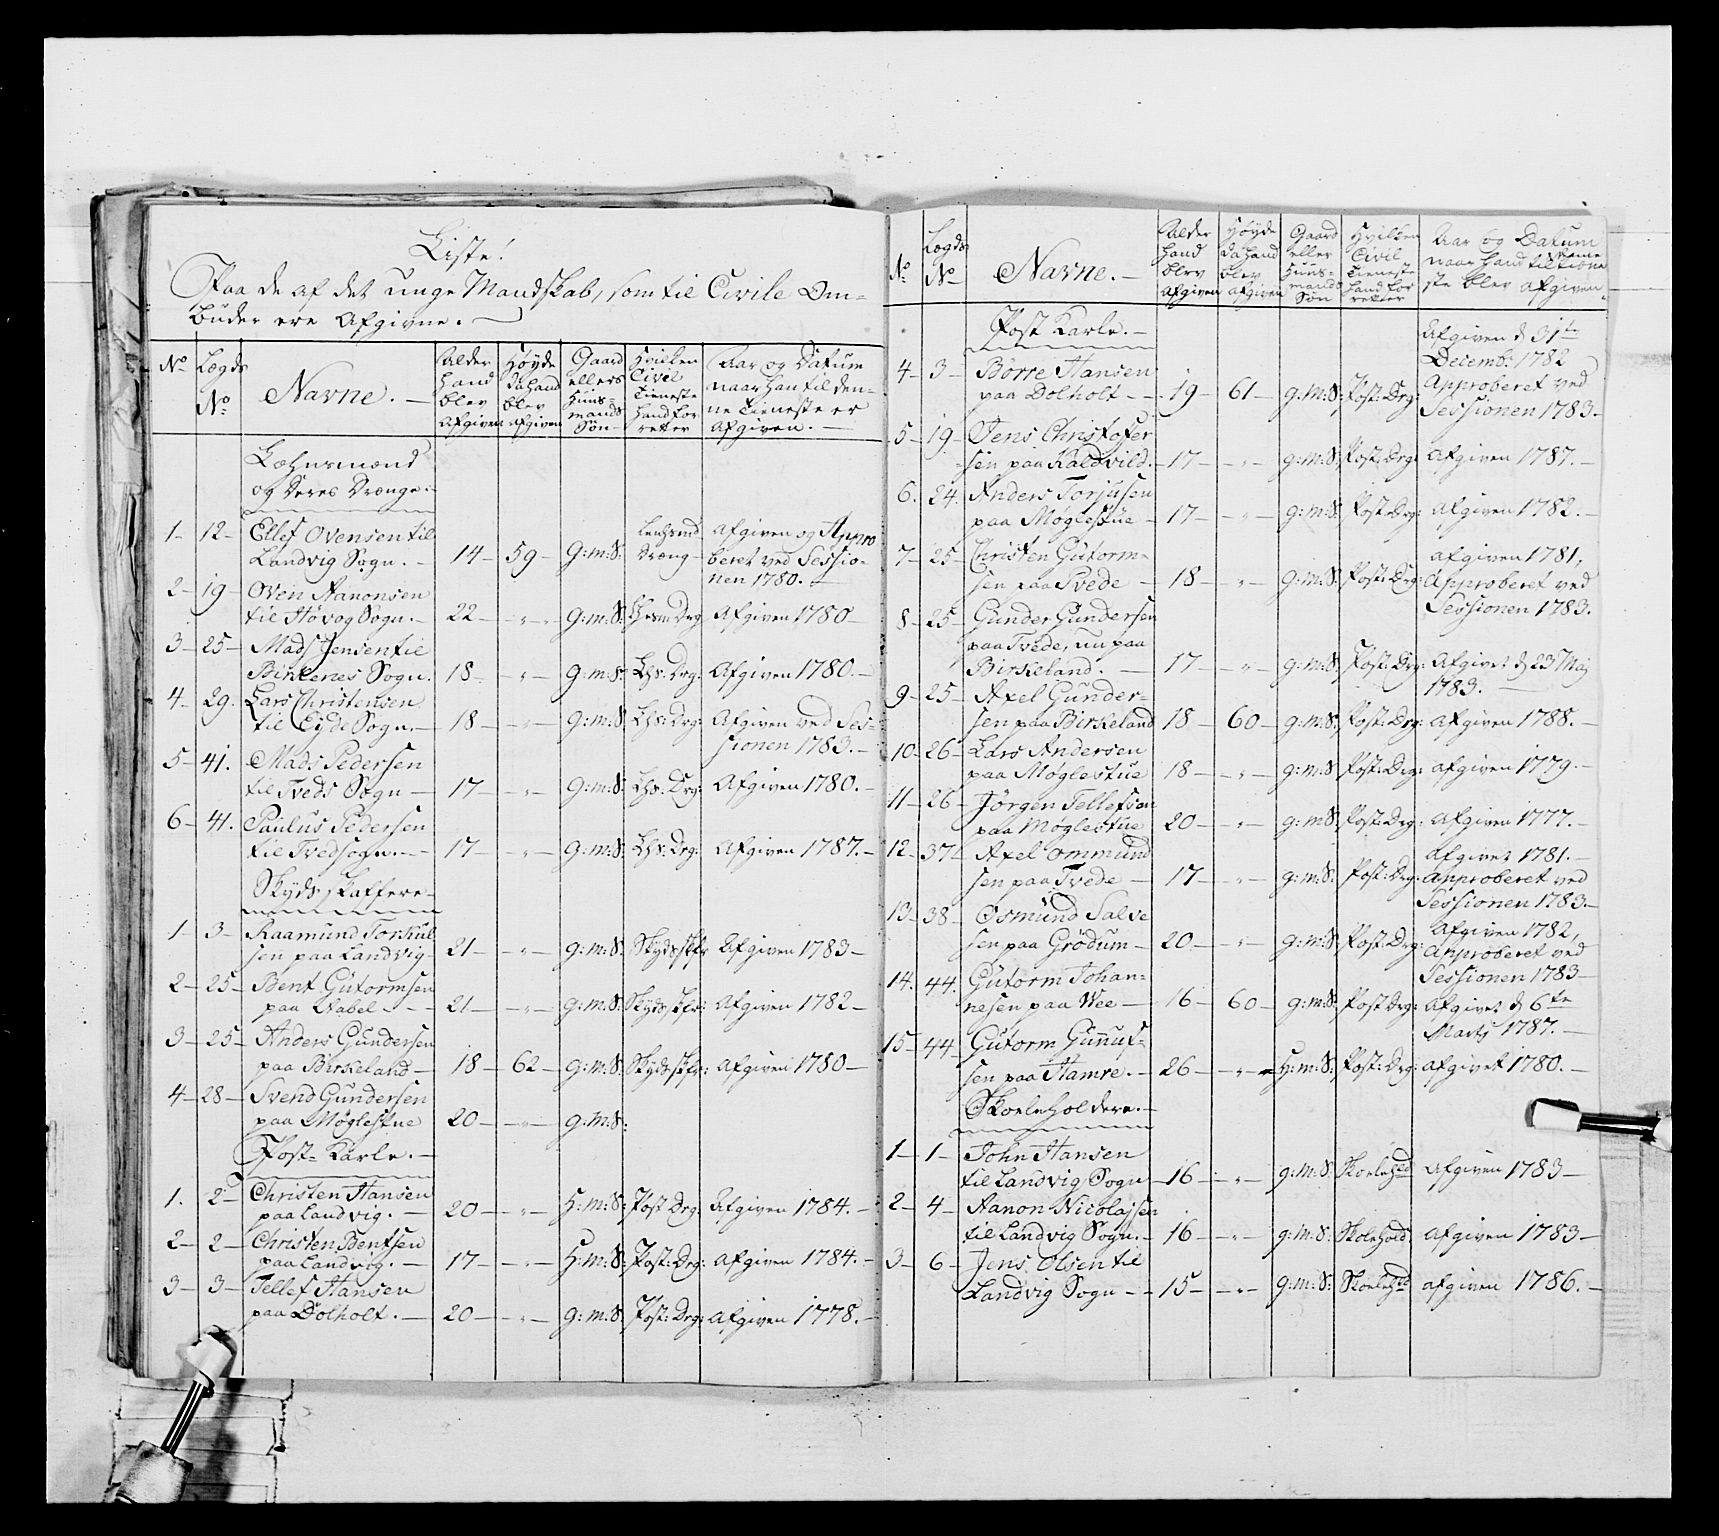 Liste!
Paa de af det unge Mandskab, som til Civile Om-
buder ere Afgivne. —
No
Lægds No
Navne. —
Alder hand blev Afgiven
Høyde da hand blev afgiven
Gaard ellers Huus-mands Søn
Hvilken Civil Tieneste hand for retter
Aar og Datum naar han til den-ne Tieneste er Afgiven. —
Læhnsmænd
og Deres Drænge.
1- 12- Ellef Ovensen til
Landvig Sogn. - 14- 59- G:m:S: Lenhsmd Dræng- Afgiven og Appro
beret ved Sessio-
nen 1780. —
2- 19- Oven Aanonsen
til Høvog Sogn. - 22- -"- G:m:S: Lhsm Drg Afgiven 1780-
3- 25- Mads Jensen til
Birkenes Sogn. 18- -"- g:m:S: Lhs: Drg: Afgiven 1780.-
4- 29. Lars Christensen
til Eyde Sogn.- 18- -"- g:m:S Lhs: Drg: Afgiven ved Ses-
sionen 1783.-
5- 41. Mads Pedersen
til Tveds Sogn- 17- -"- G:m:S: Lhs: Drg: Afgiven 1780.-
6- 41. Paulus Pedersen
til Tvedsogn.-- 17- -"- G:m:S: Lhs: Drg: Afgiven 1787.-
Skydsskaffere-
1- 3- Raamund Torkild
sen paa Landvig- 21- -"- g:m:S. Skydsskfr Afgiven 1783-
2- 25- Bent Gutormsen
paa Nabel - - - 21- -"- g:m:S: Skydsskfr: Afgiven 1782-
3- 25- Anders Gundersen
paa Birkeland- 18- 62- g:m:S: Skydsskfr: Afgiven 1780-
4- 28- Svend Gundersen
paa Møglestue 20- -"- g:m:S:
Post- Karle.-
1. 2- Christen Hansen
paa Landvig.- 20- -"- H:m:S: Post Drg: Afgiven 1784.-
2- 2- Christen Bentsen
paa Landvig.- 17- -"- H:m:S: Post: Drg: Afgiven 1784.-
3- 3- Tellef Hansen
paa Dolholt.- 20- -"- g:m:S. Post: Drg: Afgiven 1778.-
No
Lægds No
Navne. —
Alder hand blev Afgiven
Høyde da hand blev afgiven
Gaard eller Huus-mands Søn
Hvilken Civil Tieneste hand for retter
Aar og Datum naar hand til denne Tiene ste blev afgiven
Post Karle.-
4- 3- Börre Hansen
paa Dolholt - - 19- 61- g:m:S: Post: Drg: Afgiven d 31te
Decemb: 1782
Approberet ved
Sessionen 1783-
5- 19- Jens Christofer
sen paa Kaldvild.- 17- -"- g:m:S: Post: Drg: Afgiven 1787.-
6. 24. Anders Torjusen
paa Møglestue- 17- -"- g:m:S: Post: Drg: Afgiven 1782.-
7- 25- Christen Gutorm-
sen paa Tvede - 18- -"- g:m:S: Post: Drg: afgiven 1781,
Approberet ved
Sessionen 1783.
8- 25- Gunder Gundersen
paa Tvede, nu paa
Birkeland.- 17- -"- g:m:S. Post: Drg: Afgivet d 23 Maj
1783.-
9- 25- Axel Gunder-
sen paa Birkeland 18- 60- g:m:S: Post: Drg: Afgiven 1788.-
10- 26- Lars Andersen
paa Møglestue 18- -"- g:m:S Post: Drg: afgiven 1779.-
11- 26- Jörgen Tellefsen
paa Møglestue 20- -"- g:m:S. Post: Drg: Afgiven 1777.-
12- 37- Axel Ommund
sen paa Tvede- 17- -"- g:m:S: Post: Drg: Afgivet 1781.-
Approberet ved
Sessionen 1783-
13- 38- Osmund Salve
sen paa Grödum- 20- -"- g:m:S. Post: Drg: Afgiven 1782,
Approberet ved
Sessionen 1783-
14. 44. Gutorm Johan-
nesen paa Wee- 16- 60- g:m:S: Post Drg: Afgivet d 6te
Martj 1787.-
15- 44- Gutorm Gunuf-
sen paa Hamre.- 26- -"- H:m:S: Post: Drg: afgivet 1780.-
Skoeleholdere.-
1- 1- John Hansen
til Landvig Sogn- 16- -"- g:m:S. Skoelehld Afgiven 1783-
2- 4- Aanon Nicolajsen
til Landvig Sogn.- 16- -"- g:m:S: Skolehold. afgiven 1783-
3- 6- Jens Olsen til
Landvig Sogn - - 15- -"- g:m:S: Skoelehld afgiven 1786.-